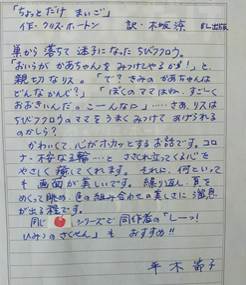 「ちょっとだけ まいご」
作・クリス・ホートン 訳・木坂涼 BL出版
巣から落ちて迷子になったちびフクロウ。
「おいらが かあちゃんを みつけてやるョ!」と
親切なリス。「で? きみの かあちゃんは
どんなかんじ?」「ぼくのママはね、すごーく
おおきいんだ。こーんなに」……さあ、リスは
ちびフクロウのママをうまくみつけて あげられる
のかしら?
かわいくて、心がホカッとするお話です。コロ
ナ・不安な
やさしく 癒してくれます。それに、何といって
も 画面が美しいです。繰り返し 頁を
めくって眺め、色の組み合わせの美しさに溜息
が出る程です。
同じ シリーズで 同作者の「しーっ!
ひみつのさくせん」も おすすめ!!
平木